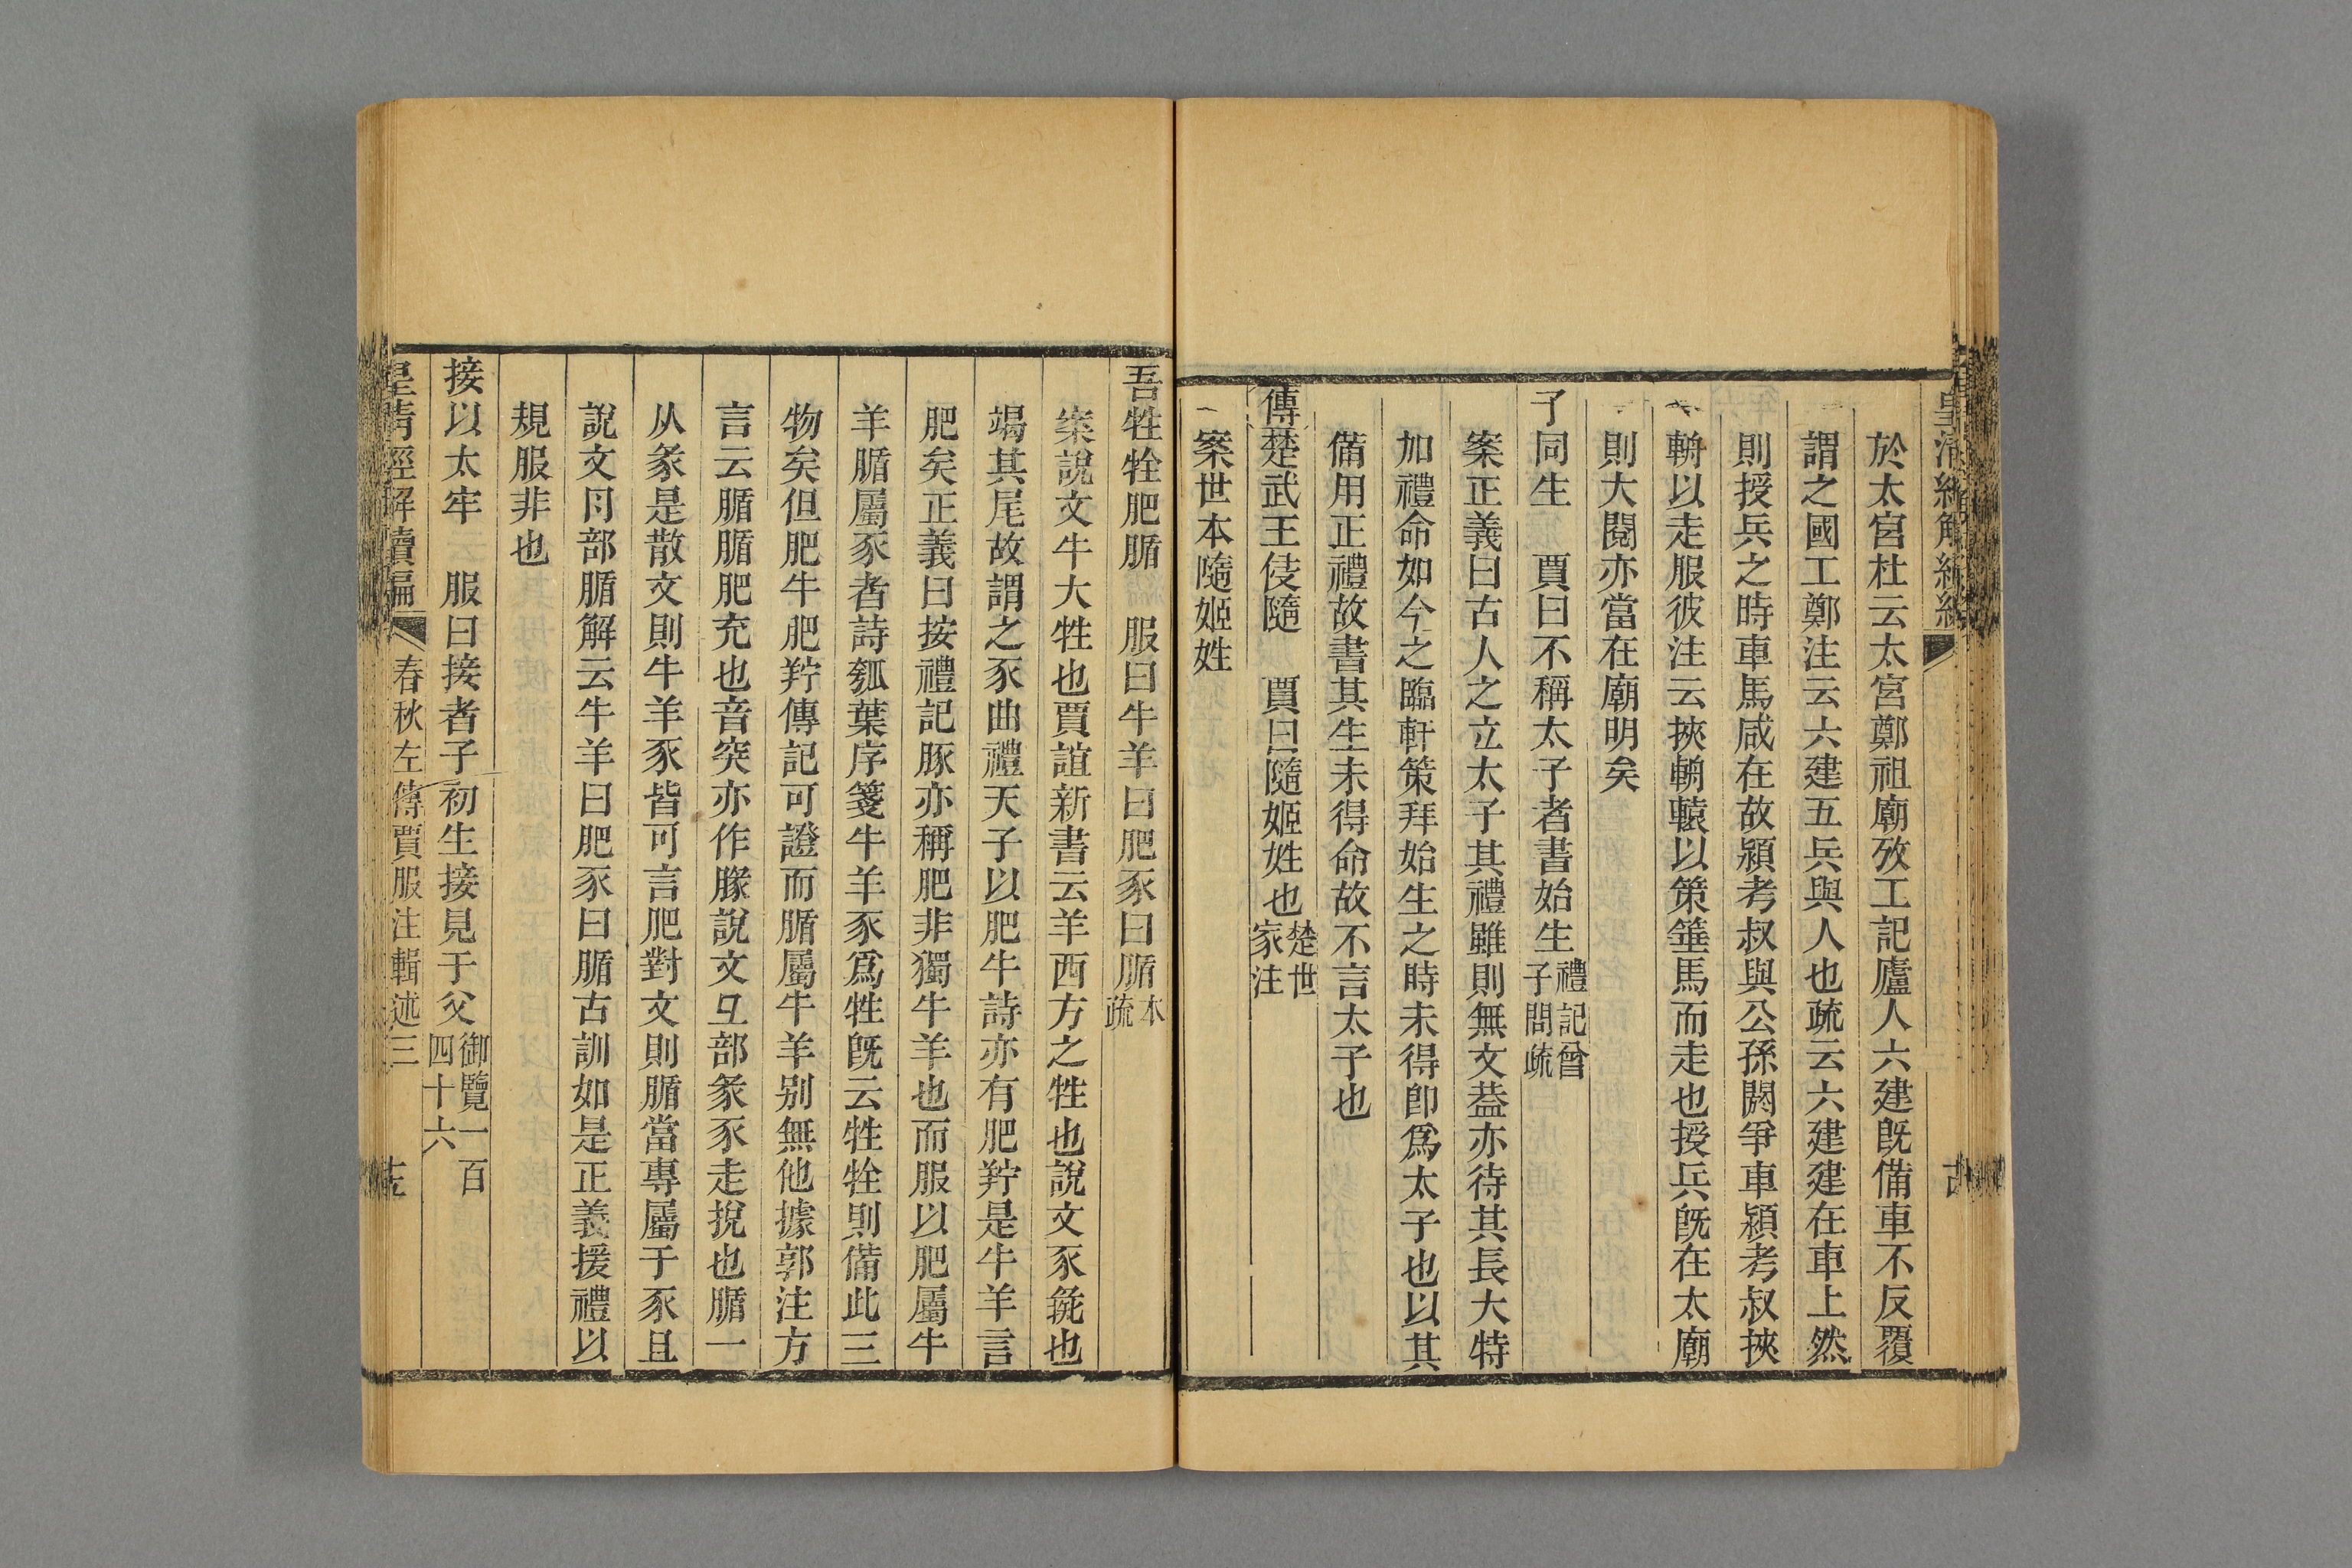 皇清經解續編
於太宮杜云太宮鄭祖廟攷工記廬人六建旣備車不反覆
謂之國工鄭注云六建五兵與人也疏云六建建在車上然
則授兵之時車馬咸在故潁考叔與公孫閼爭車潁考叔挾
輈以走服彼注云挾輈轅以策箠馬而走也授兵旣在太廟
則大閱亦當在廟明矣
子同生 賈曰不稱太子者書始生禮記曾子問疏
案正義曰古人之立太子其禮雖則無文葢亦待其長大特
加禮命如今之臨軒策拜始生之時未得卽爲太子也以其
備用正禮故書其生未得命故不言太子也
傳楚武王侵隨 賈曰隨姬姓也楚世家注
案世本隨姬姓
吾牲牷肥腯 服曰牛羊曰肥豕曰腯本疏
案說文牛大牲也賈誼新書云羊西方之牲也說文豕彘也
竭其尾故謂之豕曲禮天子以肥牛詩亦有肥羜是牛羊言
肥矣正義曰按禮記豚亦稱肥非獨牛羊也而服以肥屬牛
羊腯屬豕者詩瓠葉序箋牛羊豕爲牲旣云牲牷則備此三
物矣但肥牛肥羜傳記可證而腯屬牛羊别無他據郭注方
言云腯腯肥充也音突亦作腞說文彑部彖豕走挩也腯一
从彖是散文則牛羊豕皆可言肥對文則腯當專屬于豕且
說文肉部腯解云牛羊曰肥豕曰腯古訓如是正義援禮以
規服非也
接以太牢 服曰接者子初生接見于父御覽一百四十六
皇清經解續編 春秋左傳賈服注輯述三